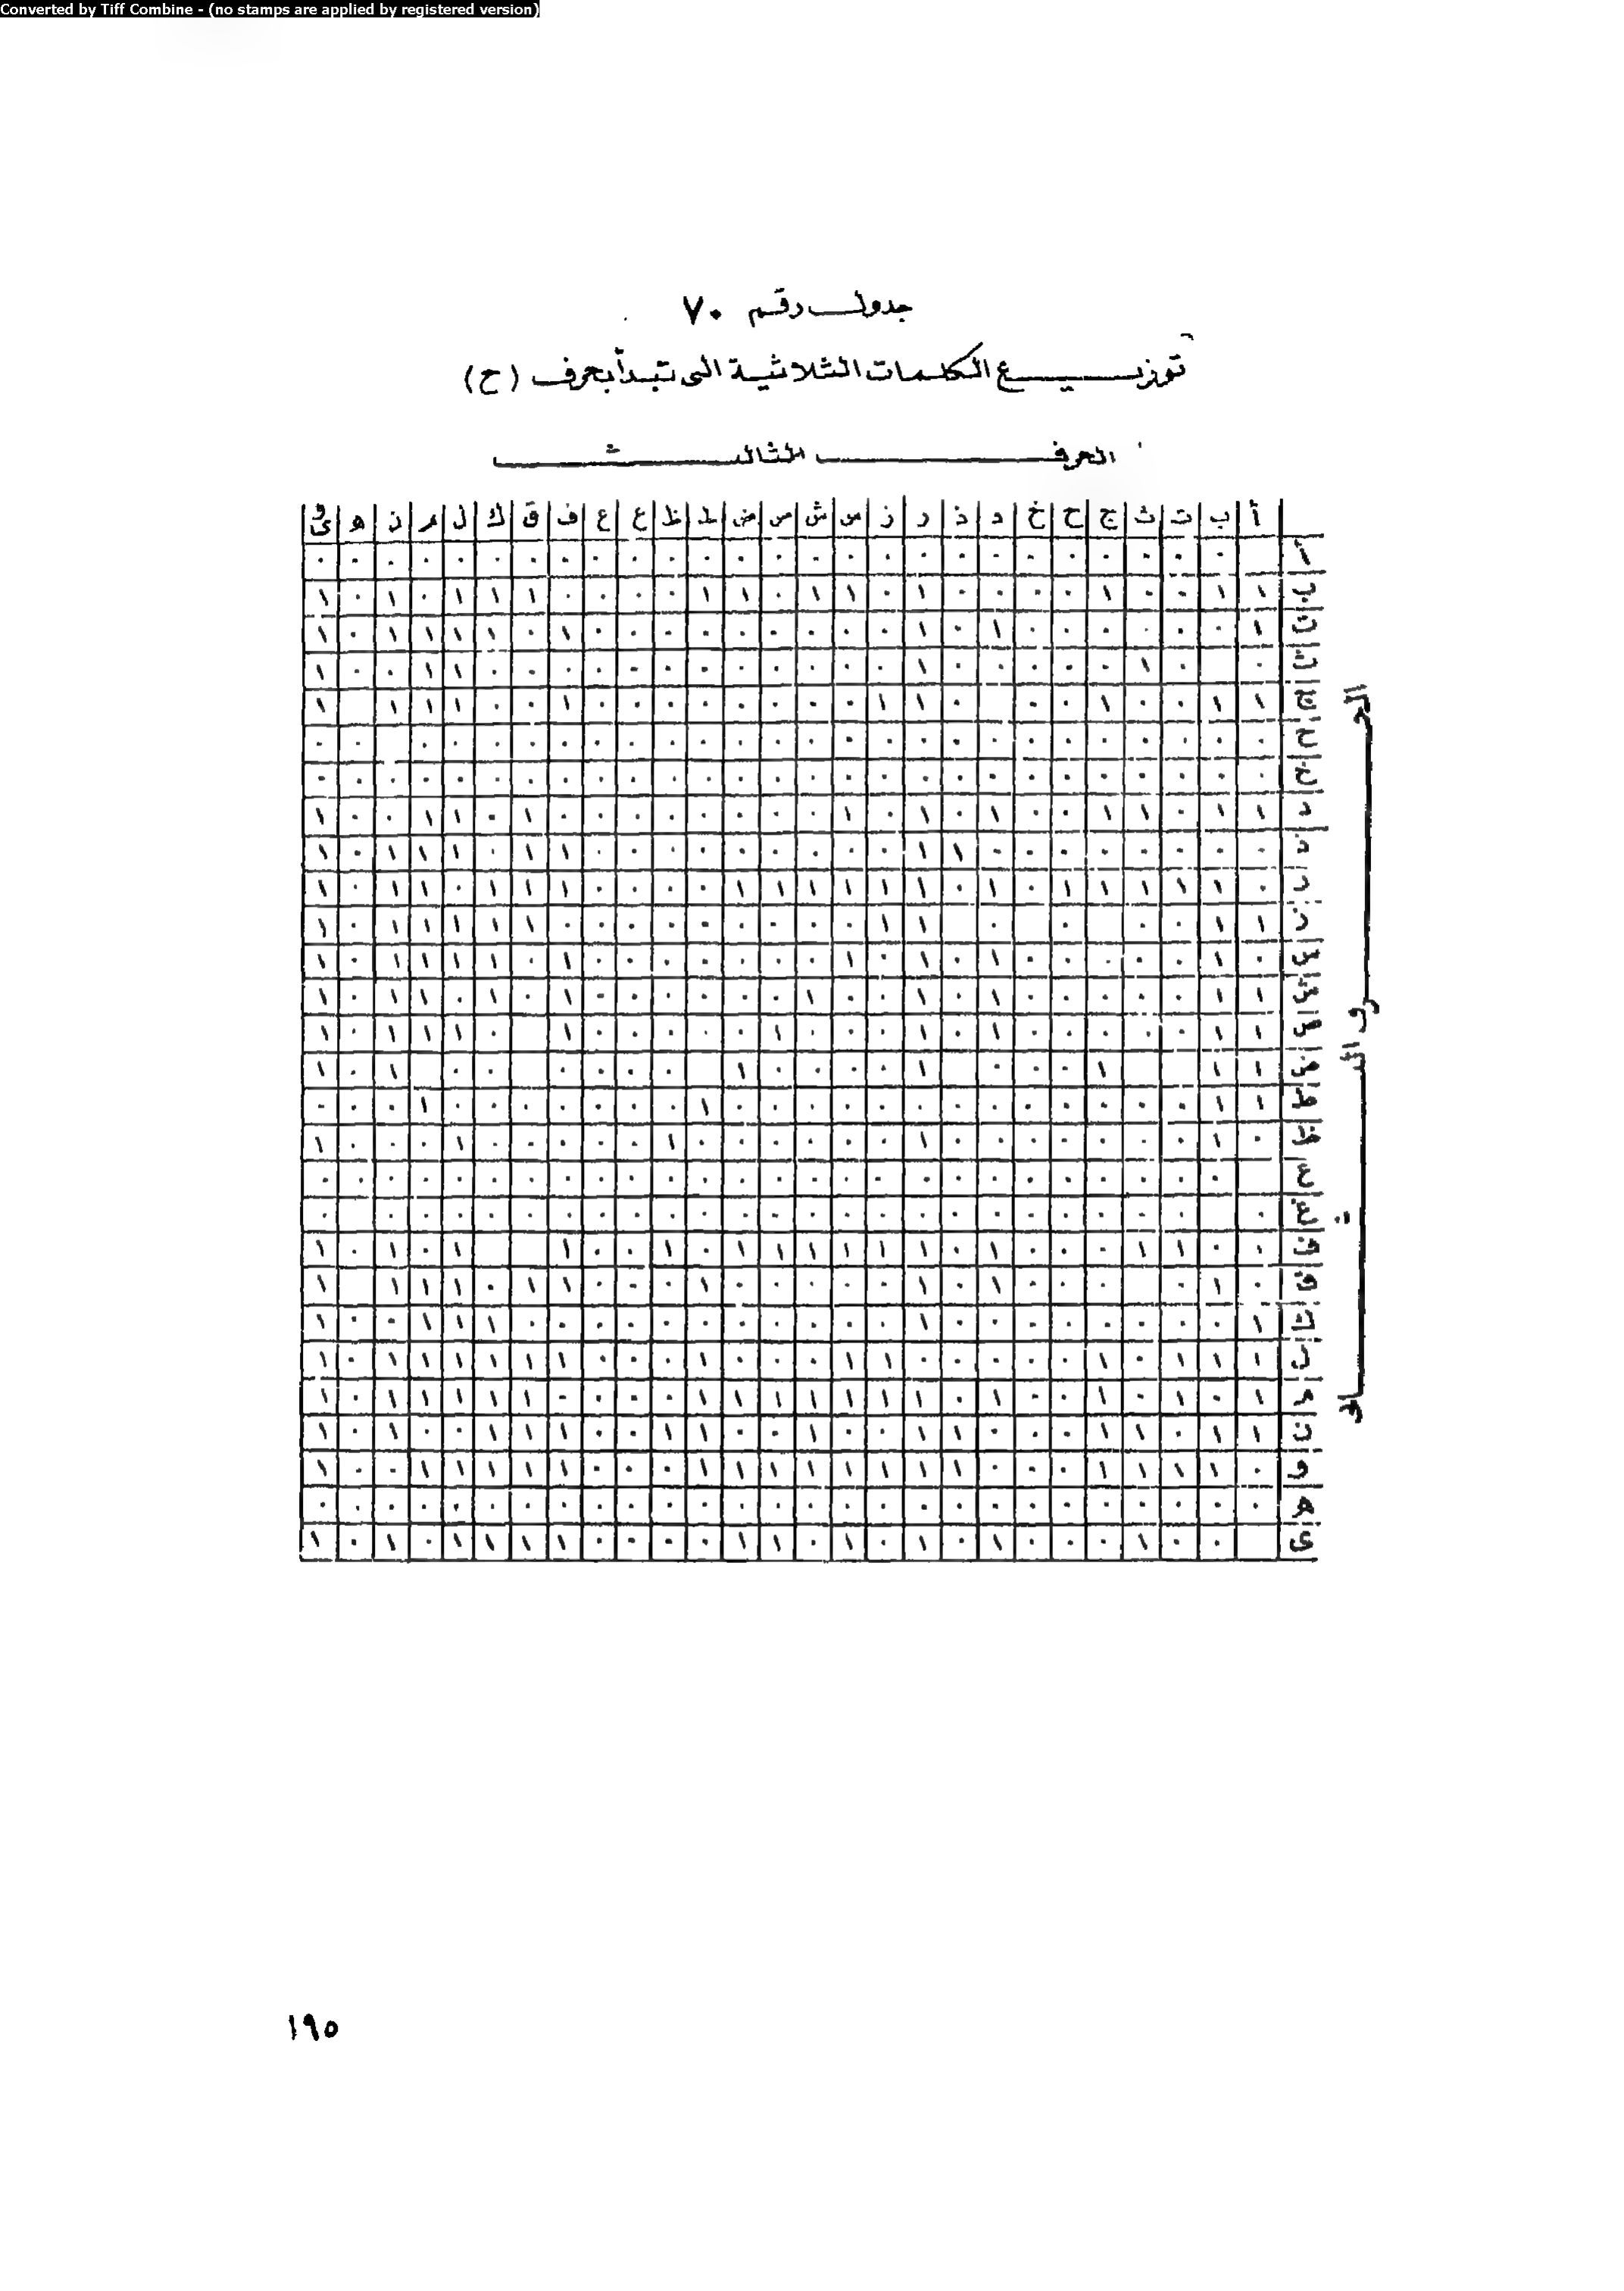 Converted by Tiff Combine - (no stamps are applied by registered version)
جدول رقم ٧٠
توزيع الكلمات الثلاثية التى تبدأ بحرف (ح)
الحرف الثالث
أ ب ت ث ج ح خ د ذ ر ز س ش ص ض ط ظ ع غ ف ق ك ل م ن ه وى
أ ٠ ٠ ٠ ٠ ٠ ٠ ٠ ٠ ٠ ٠ ٠ ٠ ٠ ٠ ٠ ٠ ٠ ٠ ٠ ٠ ٠ ٠ ٠ ٠ ٠ ٠
ب ١ ١ ٠ ٠ ١ ٠ ٠ ٠ ٠ ١ ٠ ١ ١ ٠ ١ ١ ٠ ٠ ٠ ٠ ١ ١ ١ ٠ ١ ٠ ١
ت ١ ٠ ٠ ٠ ٠ ٠ ٠ ١ ٠ ١ ٠ ٠ ٠ ٠ ٠ ٠ ٠ ٠ ٠ ١ ٠ ١ ١ ١ ١ ٠ ١
ث ٠ ٠ ١ ٠ ٠ ٠ ٠ ٠ ١ ٠ ٠ ٠ ٠ ٠ ٠ ٠ ٠ ٠ ٠ ٠ ٠ ١ ١ ٠ ٠ ١
ج ١ ١ ٠ ٠ ١ ٠ ٠ ٠ ١ ١ ٠ ٠ ٠ ٠ ٠ ٠ ٠ ٠ ١ ٠ ٠ ١ ١ ١ ١
ح ٠ ٠ ٠ ٠ ٠ ٠ ٠ ٠ ٠ ٠ ٠ ٠ ٠ ٠ ٠ ٠ ٠ ٠ ٠ ٠ ٠ ٠ ٠ ٠ ٠ ٠
خ ٠ ٠ ٠ ٠ ٠ ٠ ٠ ٠ ٠ ٠ ٠ ٠ ٠ ٠ ٠ ٠ ٠ ٠ ٠ ٠ ٠ ٠ ٠ ٠ ٠ ٠ ٠
د ١ ١ ٠ ١ ١ ٠ ٠ ١ ٠ ١ ٠ ١ ٠ ٠ ٠ ٠ ٠ ٠ ٠ ٠ ١ ٠ ١ ١ ٠ ٠ ١
ذ ٠ ٠ ٠ ٠ ٠ ٠ ٠ ٠ ١ ١ ٠ ٠ ٠ ٠ ٠ ٠ ٠ ٠ ٠ ١ ١ ٠ ١ ١ ١ ٠ ١
ر ٠ ١ ١ ١ ١ ١ ٠ ١ ٠ ١ ١ ١ ١ ١ ١ ٠ ٠ ٠ ٠ ١ ١ ١ ٠ ١ ١ ٠ ١
ز ١ ١ ٠ ٠ ٠ ٠ ١ ١ ٠ ٠ ٠ ٠ ٠ ٠ ٠ ٠ ٠ ١ ١ ١ ١ ١ ٠ ١
س ٠ ١ ٠ ٠ ٠ ٠ ٠ ١ ٠ ١ ٠ ١ ٠ ٠ ٠ ٠ ٠ ٠ ٠ ١ ٠ ١ ١ ١ ١ ٠ ١
ش ١ ١ ٠ ٠ ٠ ٠ ٠ ١ ٠ ١ ٠ ٠ ١ ٠ ٠ ٠ ٠ ٠ ٠ ١ ٠ ١ ٠ ١ ١ ٠ ١
ص ١ ١ ٠ ٠ ٠ ٠ ٠ ١ ٠ ١ ٠ ٠ ٠ ١ ٠ ٠ ٠ ٠ ٠ ١ ٠ ١ ١ ١ ٠ ١
ض ١ ١ ١ ٠ ٠ ٠ ١ ٠ ٠ ٠ ٠ ١ ٠ ٠ ٠ ٠ ٠ ٠ ١ ٠ ١
ط ١ ١ ٠ ٠ ٠ ٠ ٠ ٠ ٠ ٠ ٠ ٠ ٠ ٠ ٠ ١ ٠ ٠ ٠ ٠ ٠ ٠ ٠ ١ ٠ ٠ ٠
ظ ٠ ١ ٠ ٠ ٠ ٠ ٠ ٠ ٠ ١ ٠ ٠ ٠ ٠ ٠ ٠ ١ ٠ ٠ ٠ ٠ ٠ ١ ٠ ٠ ٠ ١
ع ٠ ٠ ٠ ٠ ٠ ٠ ٠ ٠ ٠ ٠ ٠ ٠ ٠ ٠ ٠ ٠ ٠ ٠ ٠ ٠ ٠ ٠ ٠ ٠ ٠ ٠
غ ٠ ٠ ٠ ٠ ٠ ٠ ٠ ٠ ٠ ٠ ٠ ٠ ٠ ٠ ٠ ٠ ٠ ٠ ٠ ٠ ٠ ٠ ٠ ٠ ٠
ف ٠ ٠ ١ ١ ٠ ٠ ٠ ١ ٠ ١ ١ ١ ١ ١ ١ ٠ ١ ٠ ٠ ١ ١ ٠ ١ ٠ ١
ق ٠ ١ ٠ ٠ ٠ ٠ ١ ٠ ١ ٠ ٠ ٠ ٠ ٠ ١ ٠ ٠ ٠ ١ ١ ٠ ١ ١ ١ ١
ك ١ ٠ ٠ ٠ ٠ ٠ ٠ ٠ ٠ ١ ٠ ٠ ٠ ٠ ٠ ٠ ٠ ٠ ٠ ٠ ٠ ١ ١ ١ ٠ ٠ ١
ل ١ ١ ١ ٠ ١ ٠ ٠ ٠ ٠ ٠ ١ ١ ٠ ٠ ٠ ١ ٠ ٠ ٠ ١ ١ ١ ١ ١ ١ ٠ ١
م ١ ٠ ١ ٠ ١ ٠ ٠ ١ ٠ ١ ١ ١ ١ ١ ١ ١ ٠ ٠ ٠ ٠ ١ ١ ١ ١ ١ ٠ ١
ن ١ ١ ٠ ١ ١ ٠ ٠ ٠ ١ ١ ٠ ٠ ١ ٠ ٠ ١ ١ ٠ ٠ ١ ١ ١ ٠ ٠ ١ ٠ ١
و ٠ ١ ١ ١ ١ ٠ ٠ ٠ ١ ١ ١ ١ ١ ١ ١ ١ ٠ ٠ ٠ ١ ١ ١ ١ ١ ٠ ٠ ١
ه ٠ ٠ ٠ ٠ ٠ ٠ ٠ ٠ ٠ ٠ ٠ ٠ ٠ ٠ ٠ ٠ ٠ ٠ ٠ ٠ ٠ ٠ ٠ ٠ ٠ ٠ ٠
ى ٠ ٠ ١ ٠ ٠ ٠ ١ ٠ ١ ٠ ١ ٠ ١ ١ ٠ ٠ ٠ ٠ ١ ١ ١ ١ ٠ ١ ٠ ١
الحرف الثانى
١٩٥